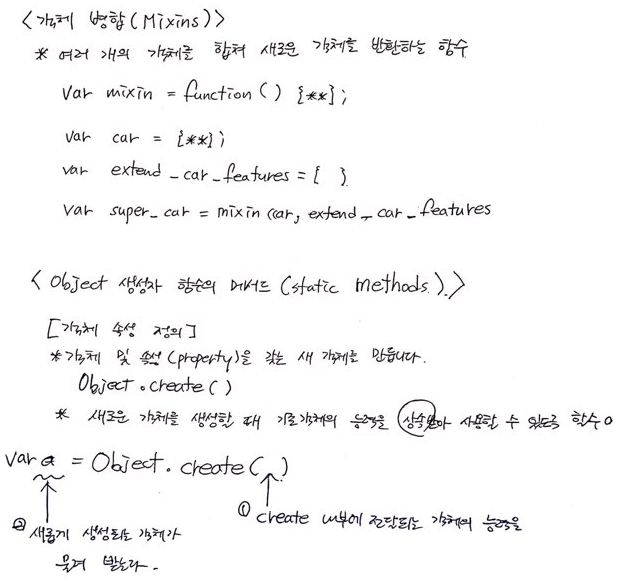 <객체 병합(Mixins)>
* 여러 개의 객체를 합쳐 새로운 객체를 반환하는 함수
Var mixin = function() {**};
Var car = {**};
var extend_car_features = { }
Var super_car = mixin(car, extend_car_features
<Object 생성자 함수의 메서드 (static methods.)>
[객체 속성 정의]
*객체 및 속성(property)을 갖는 새 객체를 만듭니다.
Object.create()
* 새로운 객체를 생성할 때 기존객체의 능력을 상속받아 사용할 수 있도록 함수o
var a = Object.create( )
① create 내부에 전달되는 객체의 능력을
② 새롭게 생성되는 객체가
물려 받는다.